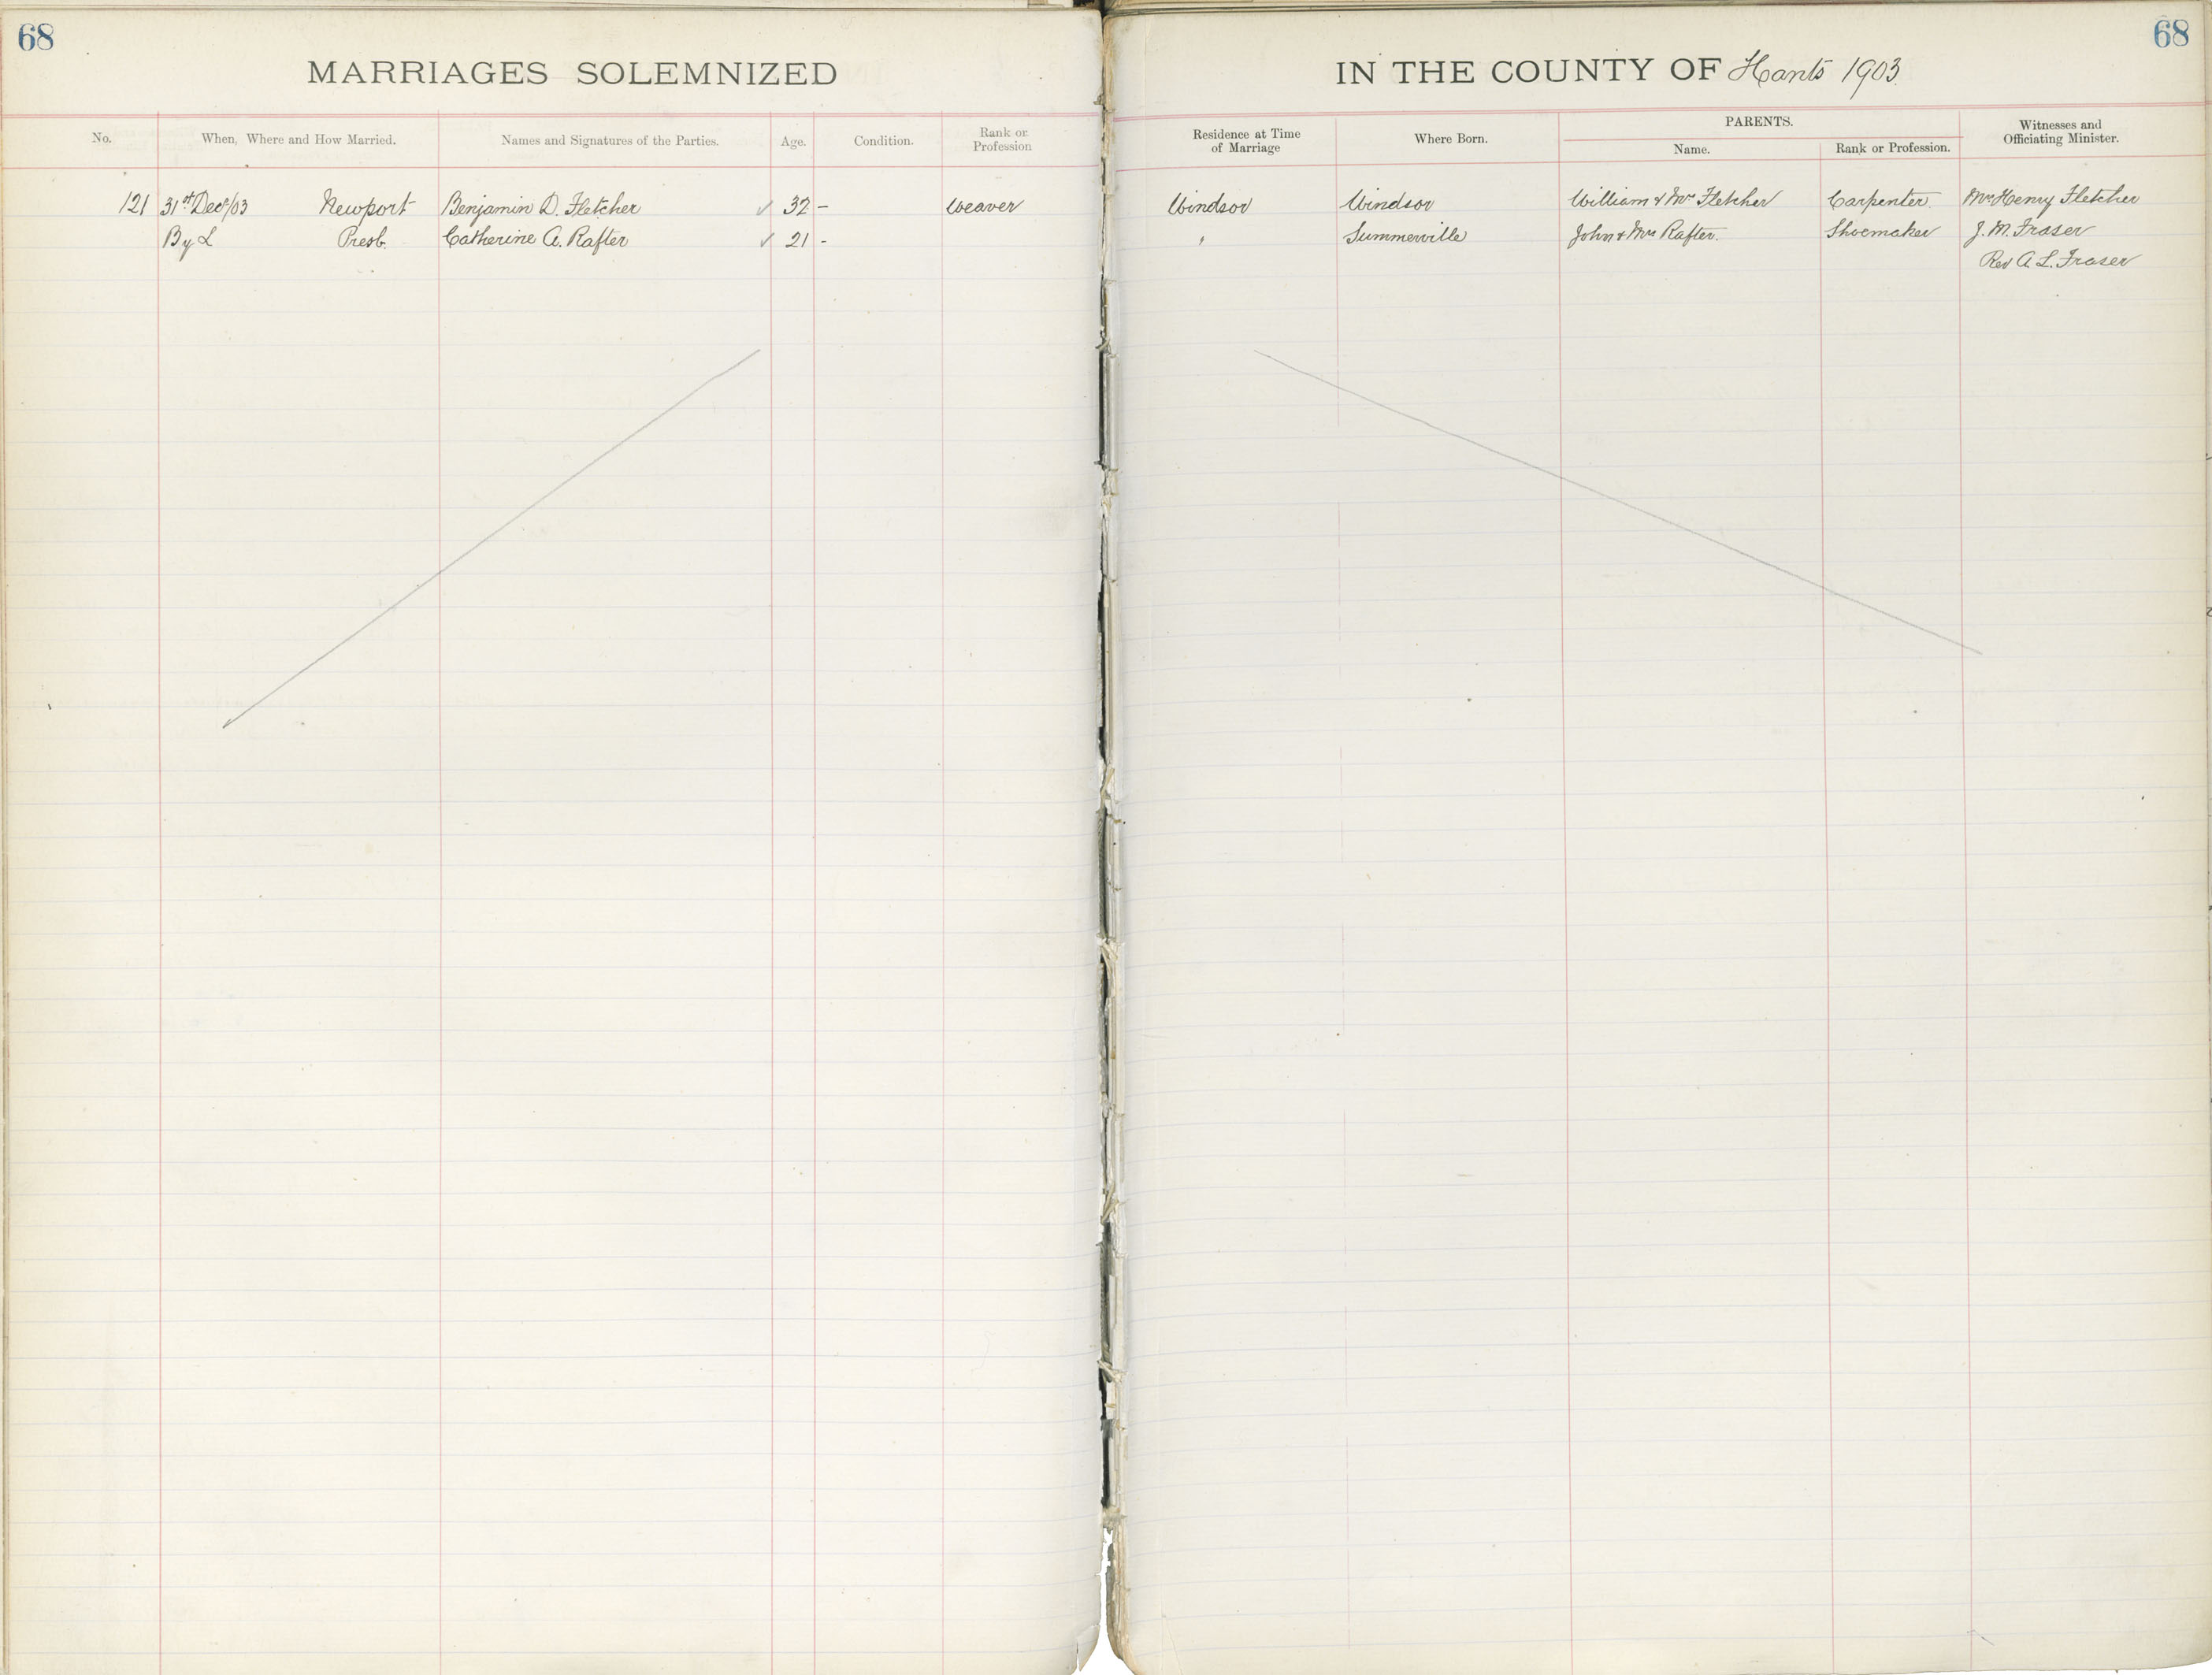 68
68
MARRIAGES SOLEMNIZED IN THE COUNTY OF Hants 1903
No. When, Where and How Married. Names and Signatures of the Parties. Age. Condition. Rank or Profession Residence at Time of Marriage Where Born. PARENTS. Name. Rank or Profession. Witnesses and Officiating Minister.
121 31st Decr/03 Newport Benjamin D. Fletcher ✓ 32 - Weaver Windsor Windsor William & Mrs Fletcher Carpenter Mrs Henry Fletcher
By L Presb. Catherine A. Rafter ✓ 21 - " Summerville John & Mrs Rafter. Shoemaker J. M. Fraser
Rev A. L. Fraser